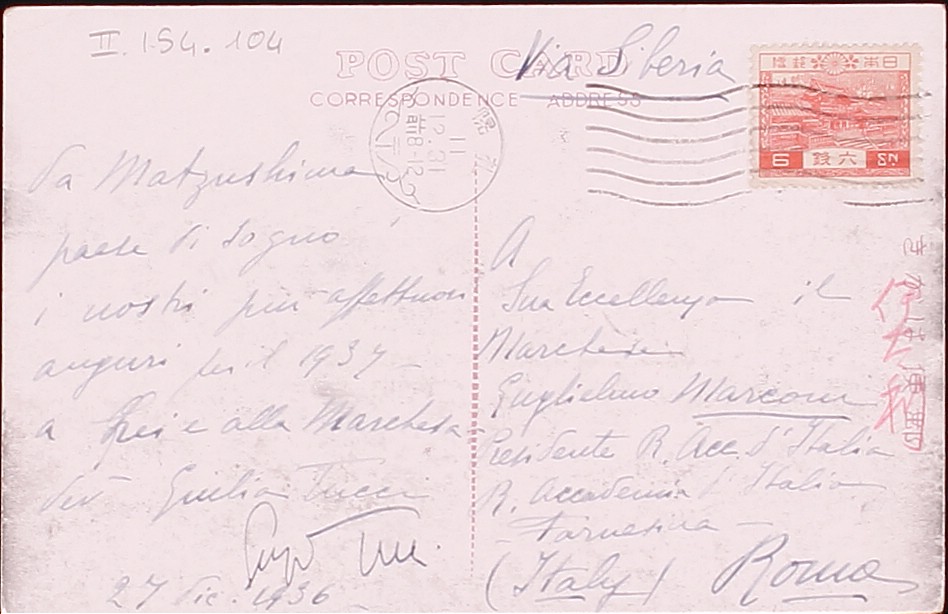 II. 1.S4. 104
POST CARD
CORRESPONDENCE ADDRESS
Via Siberia
日本
六銭
6 SN
11
12.31
Da Matzushima
paese di sogno
i nostri più affettuosi
auguri per il 1937
a Lei e alla Marchesa
dev Giulia Tucci
27 Dic. 1936
A
Sua Eccellenza il
Marchese
Guglielmo Marconi
Presidente R. Acc. d'Italia
R. Accademia d'Italia
Farnesina
(Italy) Roma